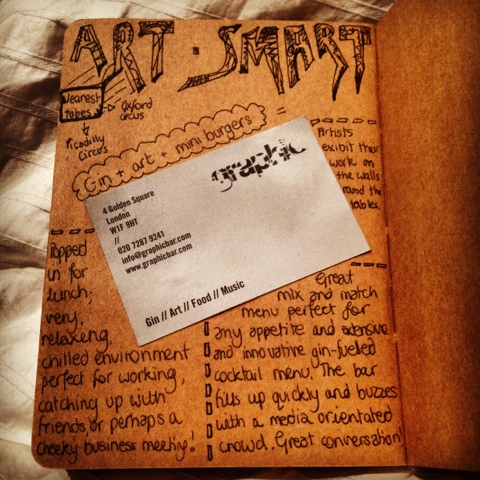 ART · SMART
Nearest
tubes
Oxford
Circus
Picadilly
Circus
Gin + art + mini burgers =
graphic
4 Golden Square
London
W1F 9HT
//
020 7287 9241
info@graphicbar.com
www.graphicbar.com
Gin // Art // Food // Music
Artists
exibit their
work on
the walls
round the
tables.
Popped
in for
lunch;
very,
relaxing,
chilled environment
perfect for working,
catching up with
friends or perhaps a
cheeky business meeting!
Great
mix and match
menu perfect for
any appetite and extensive
and innovative gin-fuelled
cocktail menu. The bar
fills up quickly and buzzes
with a media orientated
crowd. Great conversation!